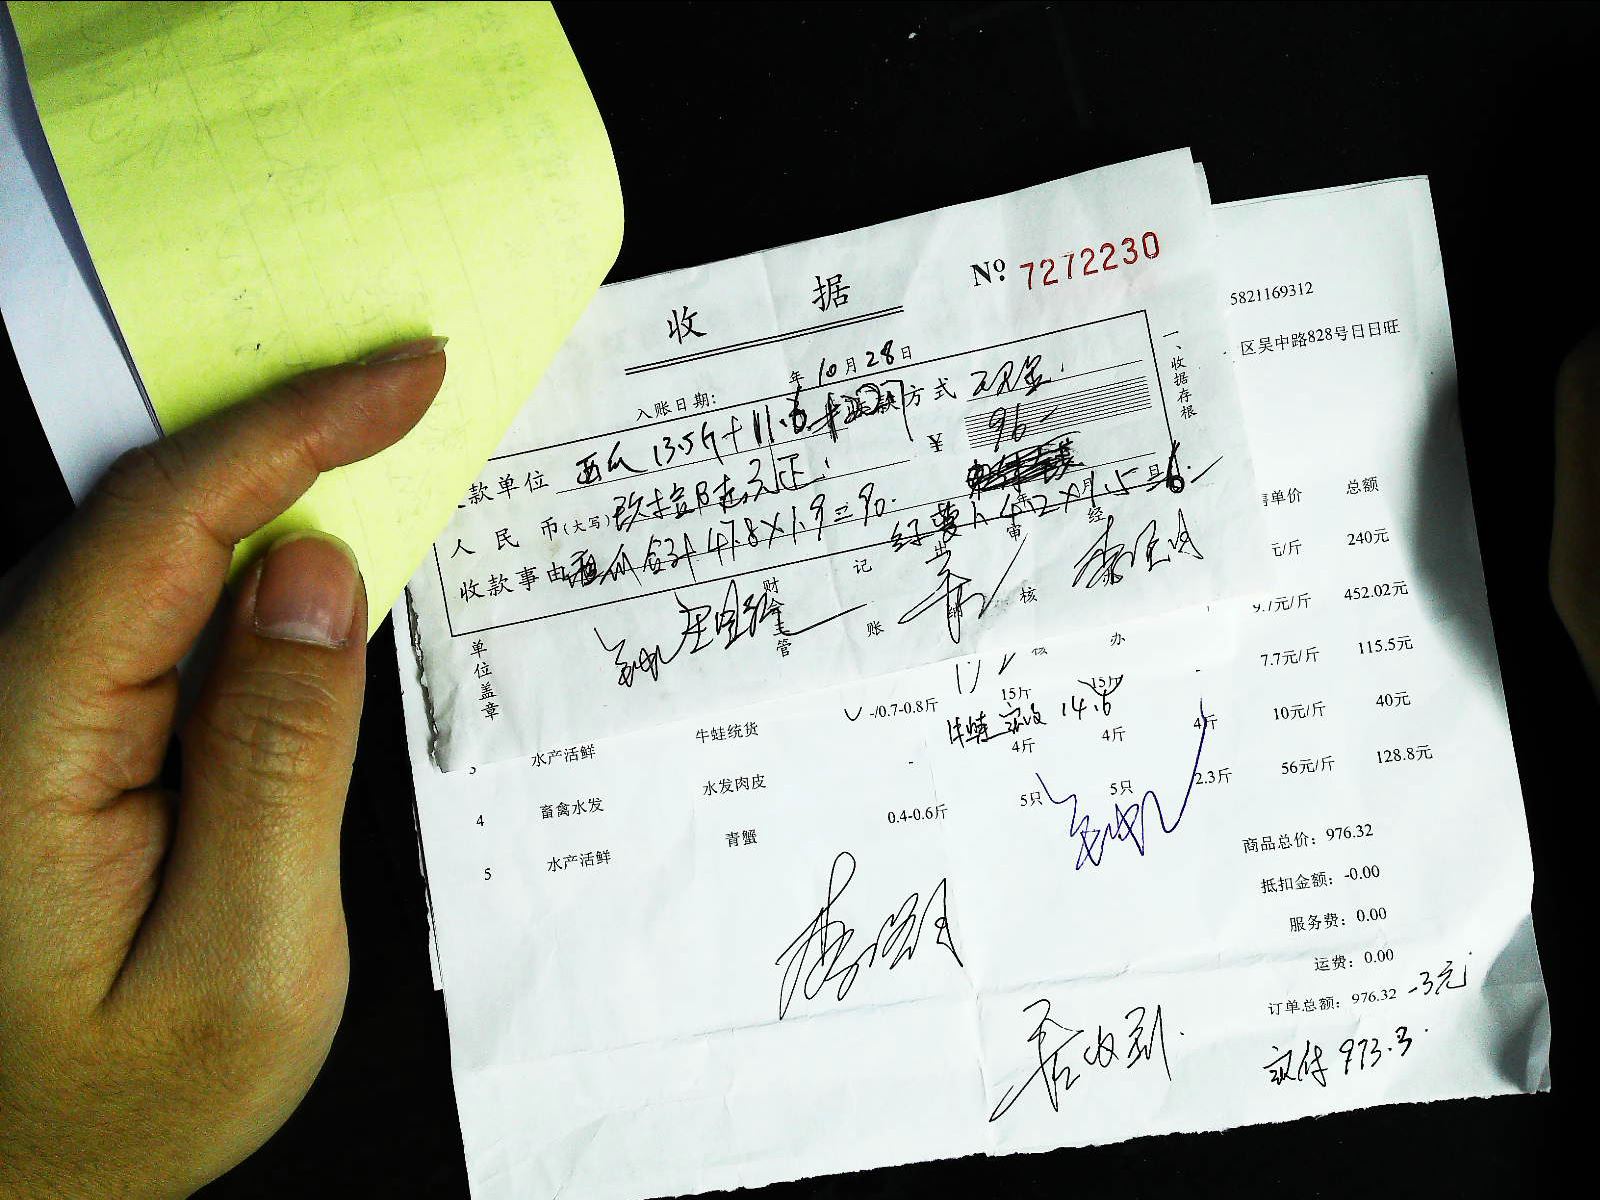 收 据
№ 7272230
入账日期: 年 10 月 28 日
款单位 西瓜 13.5斤+11.8 方式 现金.
人民币(大写) 玖拾陆元正. ¥ 96-
收款事由 西瓜合计 47.8×1.9=90. 4.2×1.5=6.
一、收据存根
单位盖章
财会主管
记账
出纳
审核
经办
5821169312
区吴中路828号日日旺
单价 总额
元/斤 240元
9.7元/斤 452.02元
3 水产活鲜 牛蛙统货 -/0.7-0.8斤 15斤 15斤 7.7元/斤 115.5元
牛蛙 实收 14.6
4 畜禽水发 水发肉皮 - 4斤 4斤 4斤 10元/斤 40元
5 水产活鲜 青蟹 0.4-0.6斤 5只 5只 2.3斤 56元/斤 128.8元
商品总价: 976.32
抵扣金额: -0.00
服务费: 0.00
运费: 0.00
订单总额: 976.32 -3元
实付 973.3